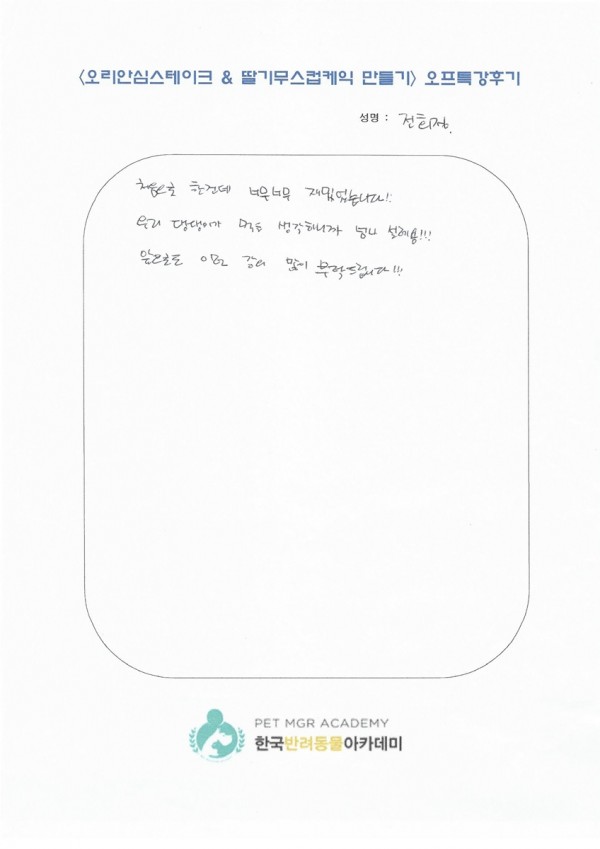 <오리안심스테이크 & 딸기무스컵케익 만들기> 오프특강후기
성명 : 전희정.
처음으로 한건데 너무너무 재밌었습니다!!
우리 댕댕이가 먹을 생각하니까 넘나 설레용!!!
앞으로도 이런 강의 많이 부탁드립니다!!!
PET MGR ACADEMY
한국반려동물아카데미